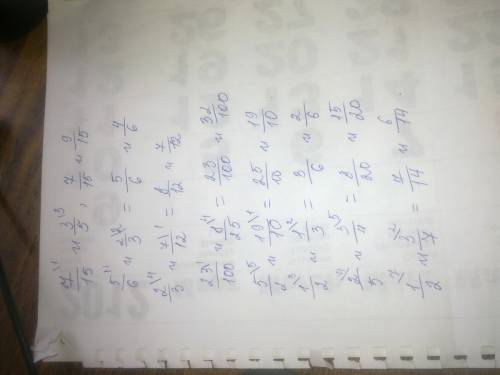 7\1/15 и 3\3/5, 7/15 и 9/15
5\1/6 и 2\2/3 = 5/6 и 4/6
2\4/3 и 7\1/12 = 8/12 и 7/12
23\1/100 и 8\4/25 = 23/100 и 32/100
5\5/2 и 19\1/10 = 25/10 и 19/10
1\3/2 и 1\2/3 = 3/6 и 2/6
2\4/5 и 3\5/4 = 8/20 и 15/20
1\7/2 и 3\2/7 = 7/14 и 6/14
2012